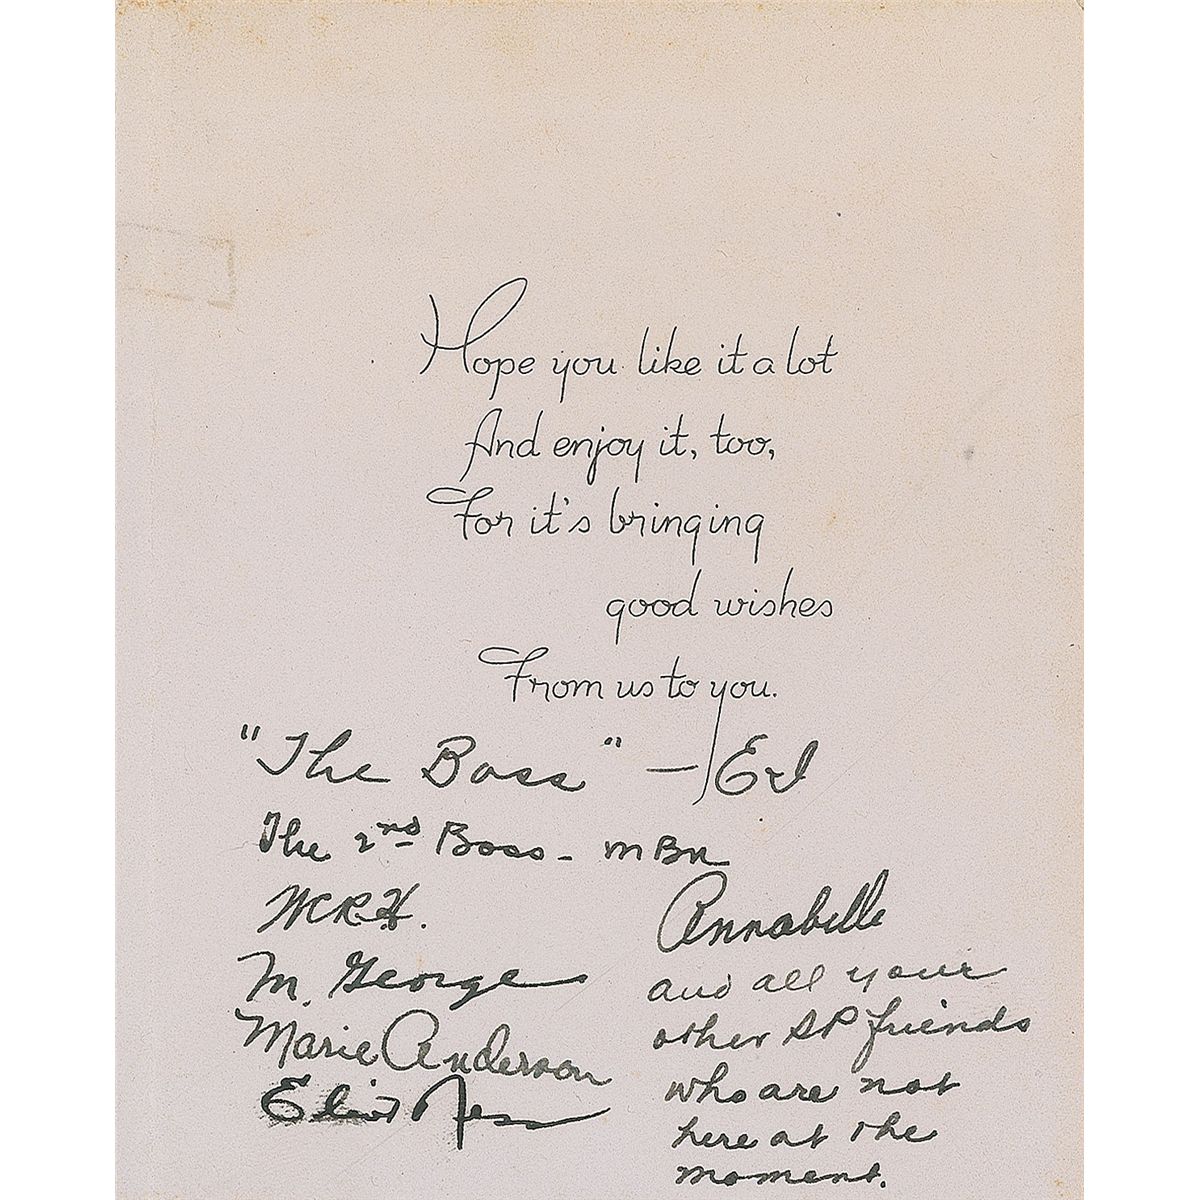 Hope you like it a lot
And enjoy it, too,
For it's bringing
good wishes
From us to you.
"The Boss" — Ed
The 2nd Boss - MBM
WCRH.
M. George
Marie Anderson
Eliot Ness
Annabelle
and all your
other SP friends
who are not
here at the
moment.